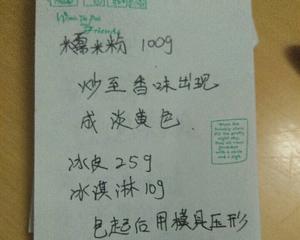 Winnie The Pooh
Friends
糯米粉 100g
炒至香味出现
成淡黄色
冰皮 25g
冰淇淋 10g
包起后用模具压形